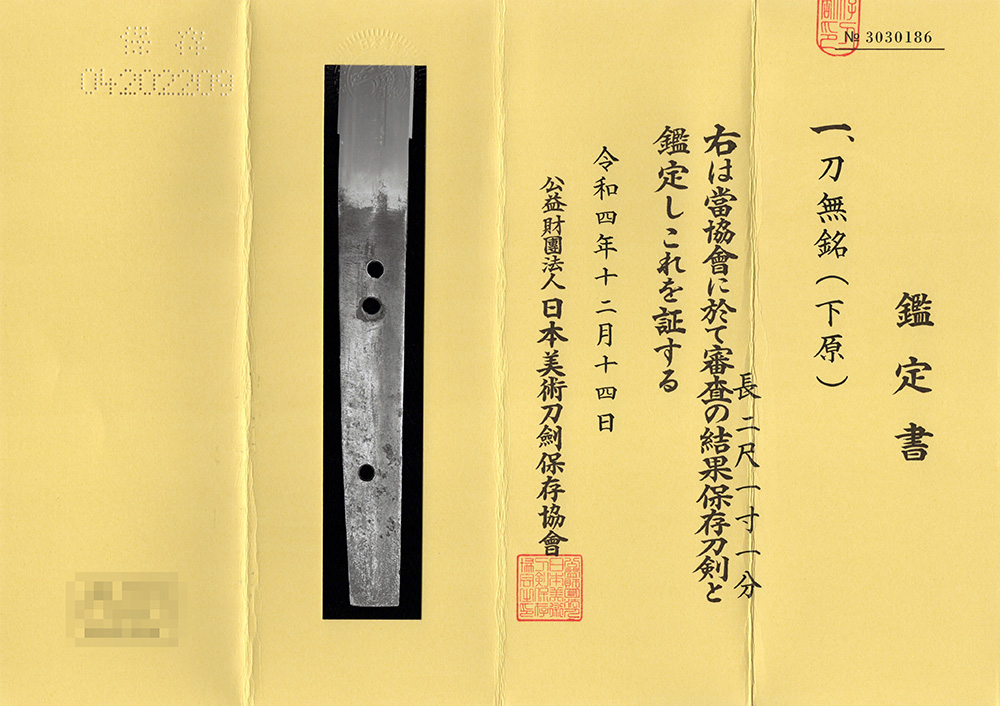 № 3030186
鑑定書
一、刀無銘（下原）
長二尺一寸一分
右は當協會に於て審査の結果保存刀剣と
鑑定しこれを証する
令和四年十二月十四日
公益財團法人日本美術刀劍保存協會
保存
04202209